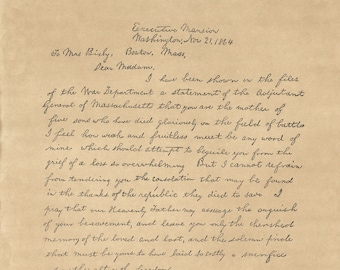 Executive Mansion
Washington, Nov. 21, 1864
To Mrs Bixby, Boston, Mass,
Dear Madam,
I have been shown in the files
of the War Department a statement of the Adjutant
General of Massachusetts that you are the mother of
five sons who have died gloriously on the field of battle
I feel how weak and fruitless must be any word of
mine which should attempt to beguile you from the
grief of a loss so overwhelming But I cannot refrain
from tendering you the consolation that may be found
in the thanks of the republic they died to save I
pray that our Heavenly Father may assuage the anguish
of your bereavement, and leave you only the cherished
memory of the loved and lost, and the solemn pride
that must be yours to have laid so costly a sacrifice